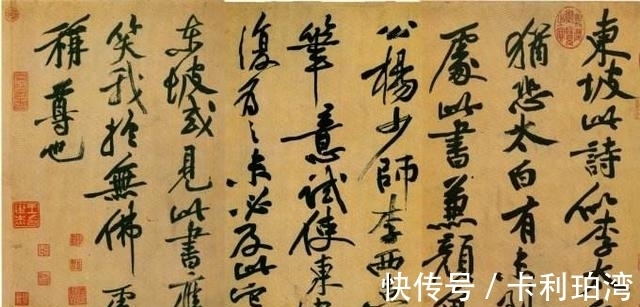 東坡此詩似李
猶恐太白有未
處此書兼顏
公楊少師李西
筆意試使東
復為之未必及此
東坡或見此書應
笑我於無佛處
稱尊也
快传号/卡利珀湾